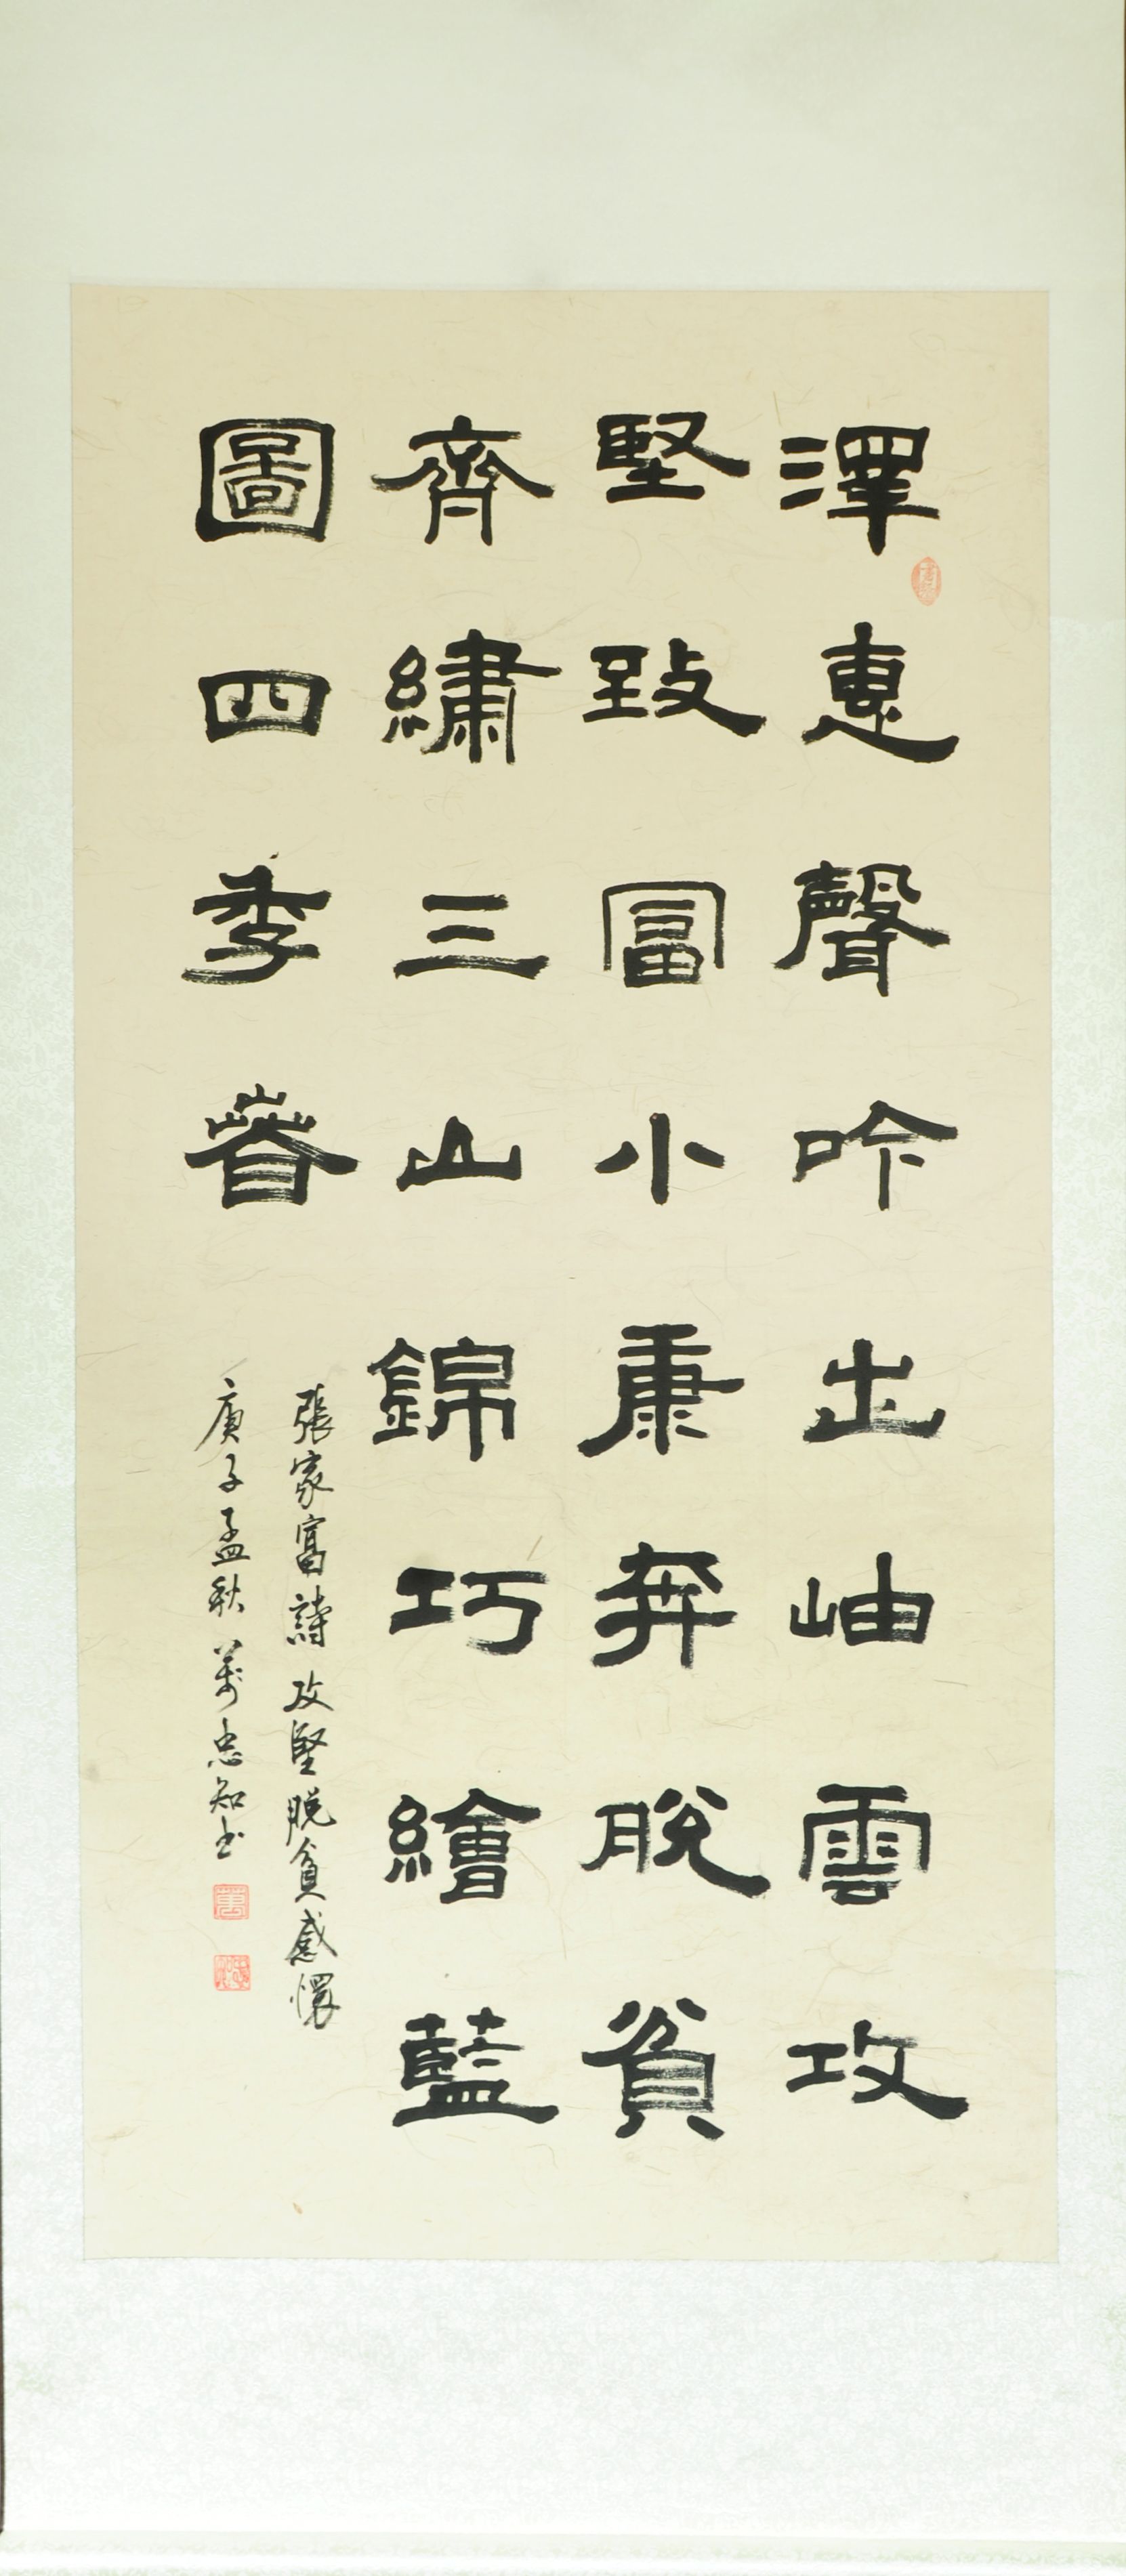 澤惠聲吟出岫雲攻
堅致富小康奔脫貧
齊繡三山錦巧繪藍
圖四季春
張家富詩攻堅脫貧感懷
庚子孟秋萬忠知书
萬